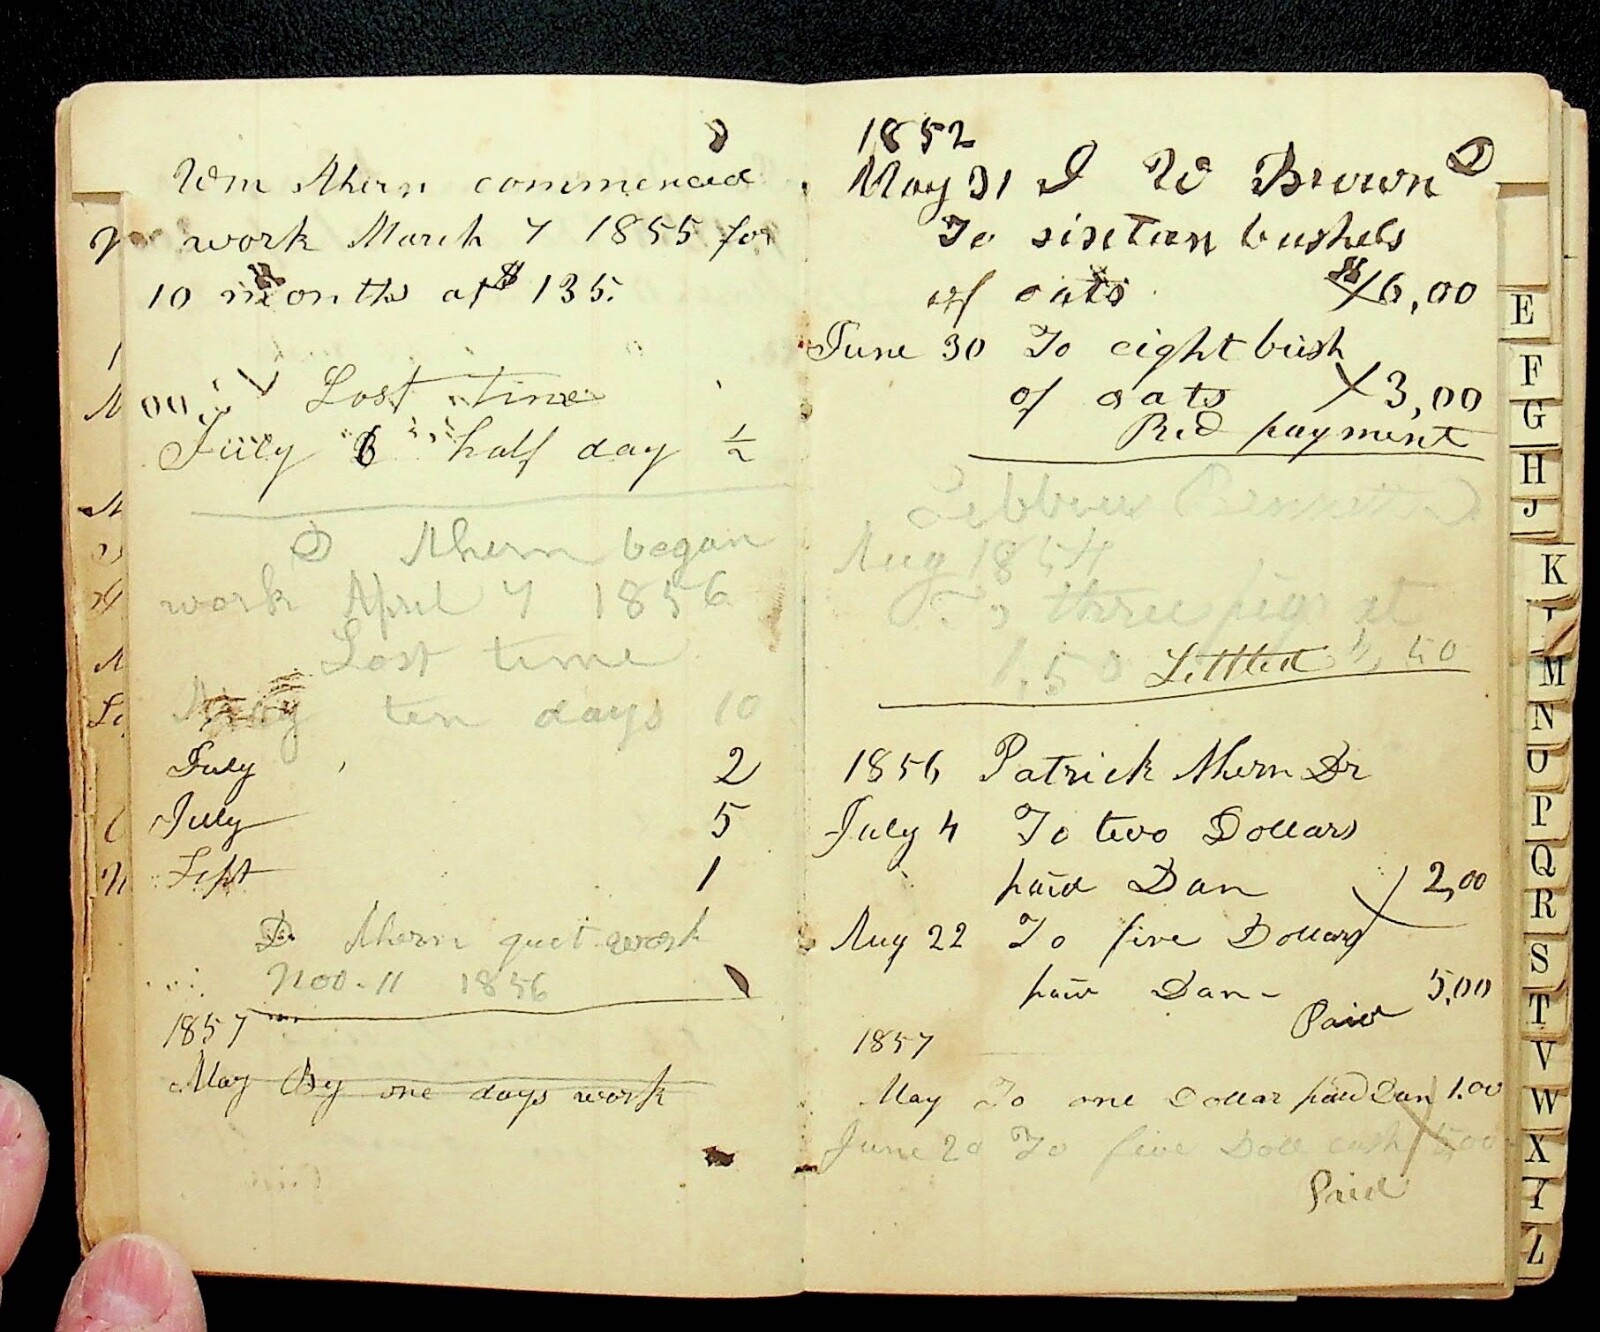 Wm Ahern commenced
work March 7 1855 for
10 months at $ 135.
00
Lost time
July 6 half day 1/2
D Ahern began
work April 7 1856
Lost time
May ten days 10
July 2
July 5
Sept 1
D. Ahern quet work
Nov. 11 1856
1857
May By one days work
1852
May 31 I W Brown D
To sixteen bushels
of oats $6,00
June 30 To eight bush
of oats 3,00
Rec payment
Lebbeus Bennett D
Aug 1854
To three pigs at
1,50 Settled 4,50
1856 Patrick Ahern Dr
July 4 To two Dollars
paid Dan 2,00
Aug 22 To five Dollars
paid Dan - 5,00
Paid
1857
May To one Dollar paid Dan 1.00
June 20 To five Doll cash 5,00
Paid
E
F
G
H
J
K
M
N
O
P
Q
R
S
T
V
W
X
Y
Z